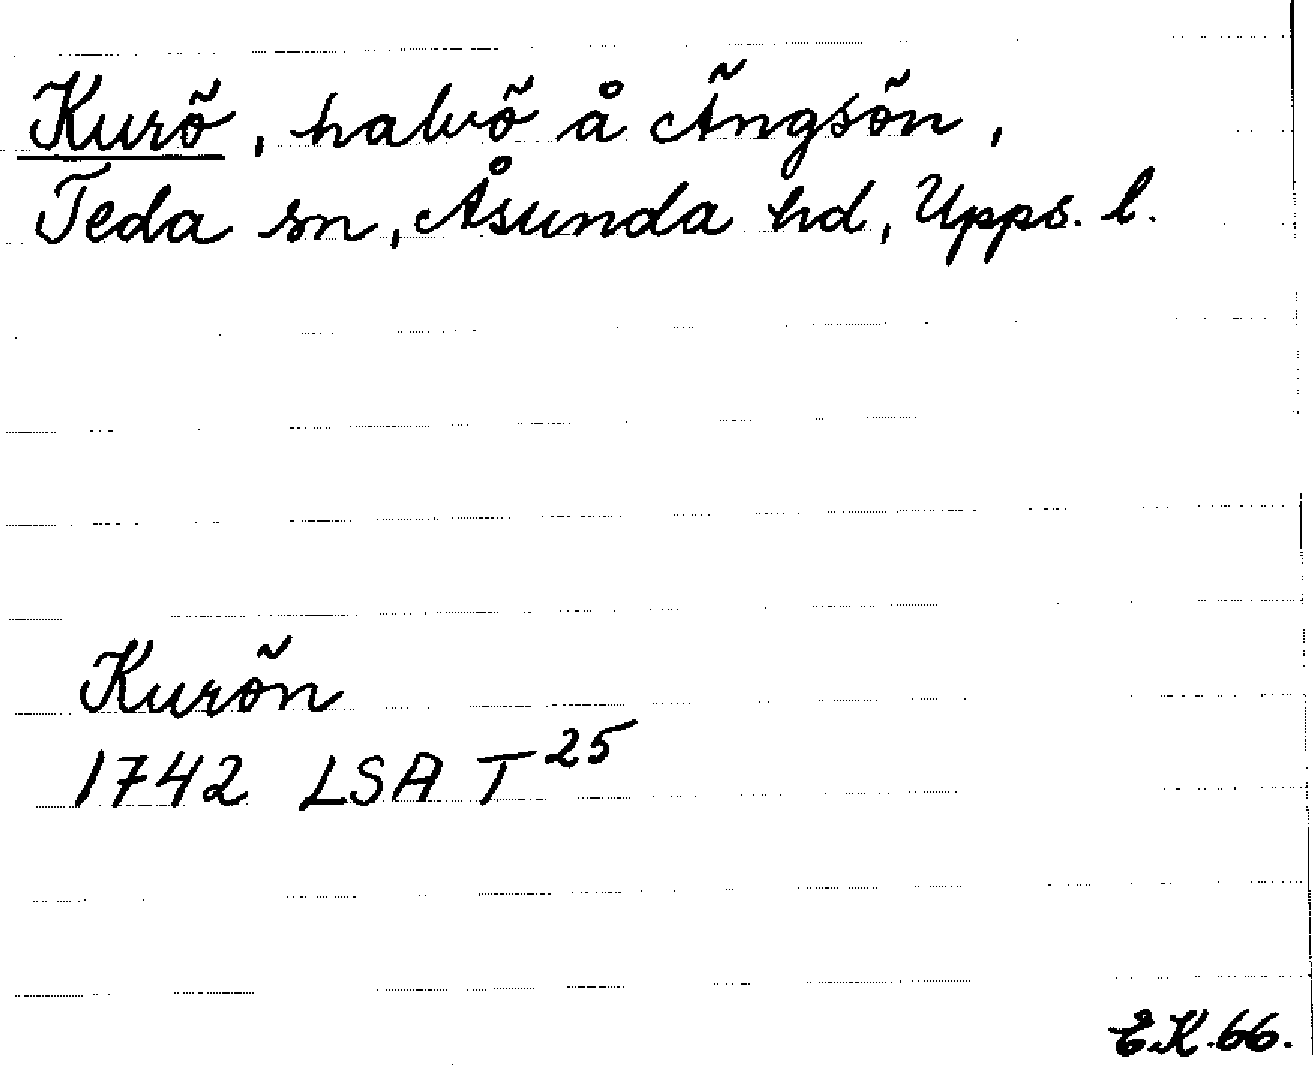 Kurö, halvö å Ängsön,
Teda sn, Åsunda hd, Upps. l.
Kurön
1742 LSA T²⁵
E.K. 66.